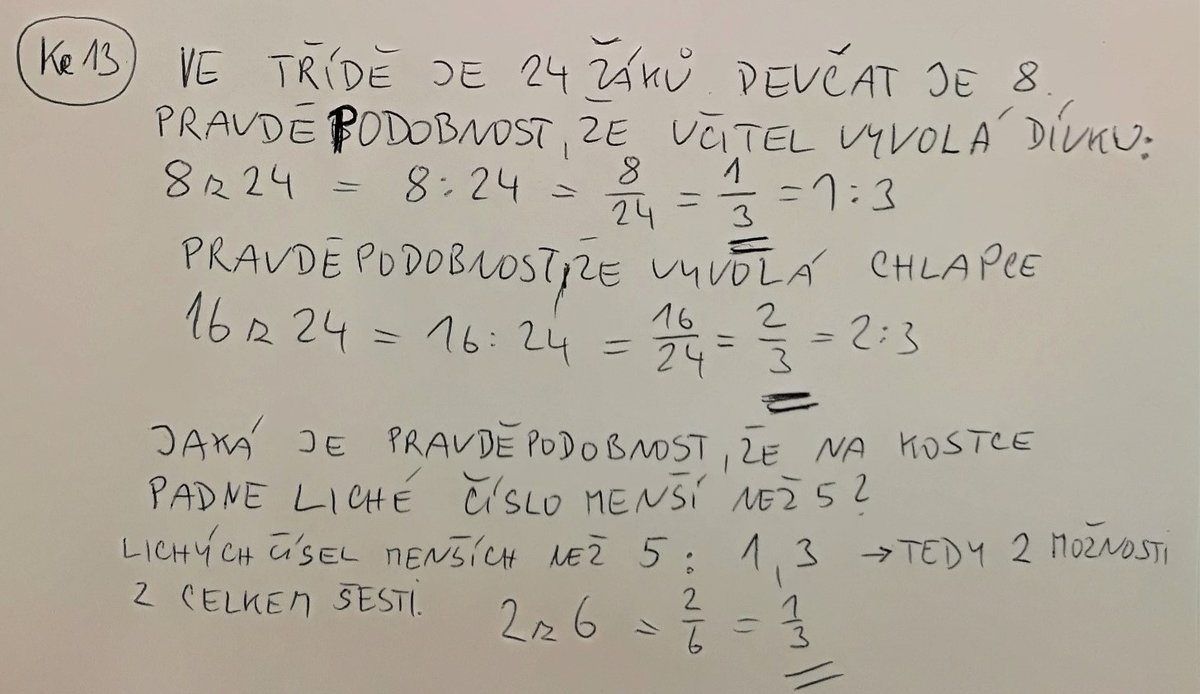 Ke 13
VE TŘÍDĚ JE 24 ŽÁKŮ. DEVČAT JE 8.
PRAVDĚPODOBNOST, ŽE UČITEL VYVOLÁ DÍVKU:
8 z 24 = 8 : 24 = 8/24 = 1/3 = 1 : 3
PRAVDĚPODOBNOST, ŽE VYVOLÁ CHLAPCE
16 z 24 = 16 : 24 = 16/24 = 2/3 = 2 : 3
JAKÁ JE PRAVDĚPODOBNOST, ŽE NA KOSTCE
PADNE LICHÉ ČÍSLO MENŠÍ NEŽ 5?
LICHÝCH ČÍSEL MENŠÍCH NEŽ 5 : 1, 3 → TEDY 2 MOŽNOSTI
Z CELKEM ŠESTI.
2 z 6 = 2/6 = 1/3